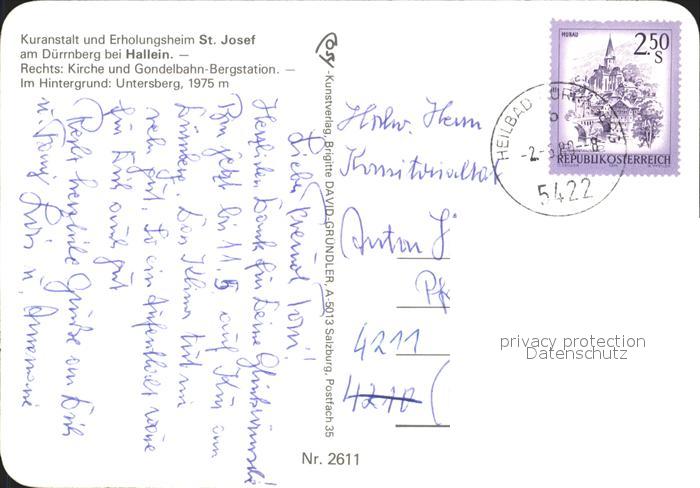 Kuranstalt und Erholungsheim St. Josef
am Dürrnberg bei Hallein. —
Rechts: Kirche und Gondelbahn-Bergstation. —
Im Hintergrund: Untersberg, 1975 m
Lieber Freund Toni!
Herzlichen Dank für Deine Glückwünsche
Bin jetzt bis 11.5. auf Kur am
Dürrnberg. Das Klima tut mir
sehr gut. So ein Aufenthalt wäre
für Dich auch gut
Recht herzliche Grüße an Dich
u.
-Kunstverlag, Brigitte DAVID-GRÜNDLER, A-5013 Salzburg, Postfach 35
Nr. 2611
Hochw. Herrn
Konsistorialrat
Anton
Pf
4211
4210
MURAU
2.50
S
REPUBLIK ÖSTERREICH
HEILBAD
5422
privacy protection
Datenschutz